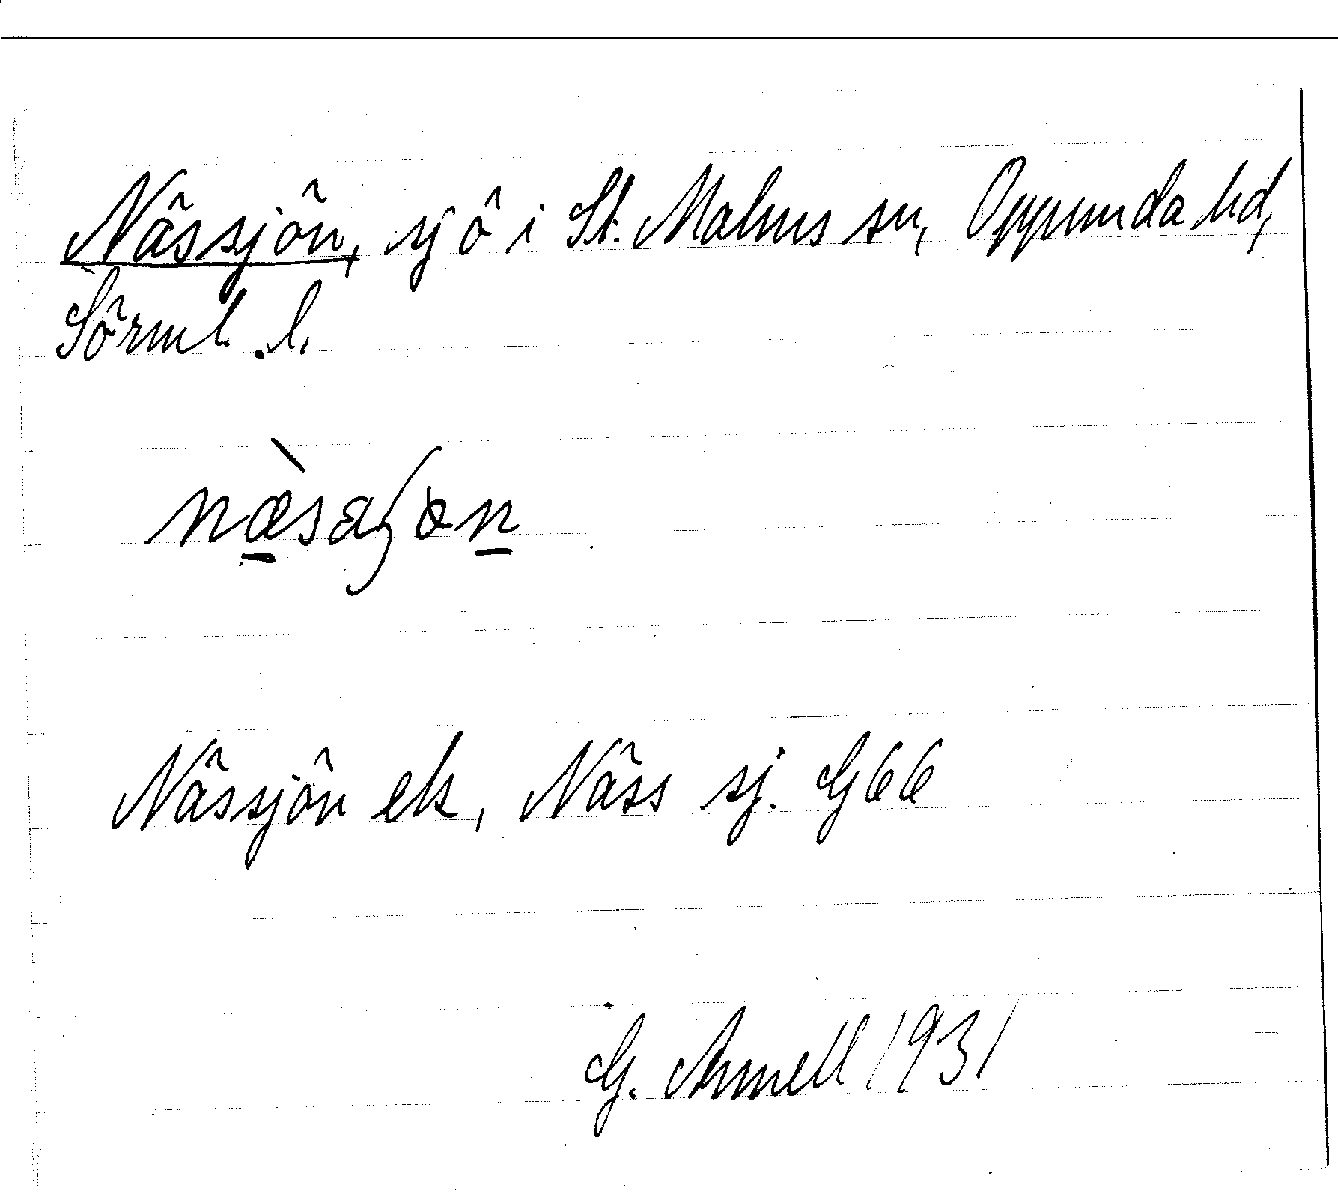 Nässjön, sjö i St. Malms sn, Oppunda hd,
Sörml. l.
Nässjön ek, Näss sj. G66
G. Annell 1931